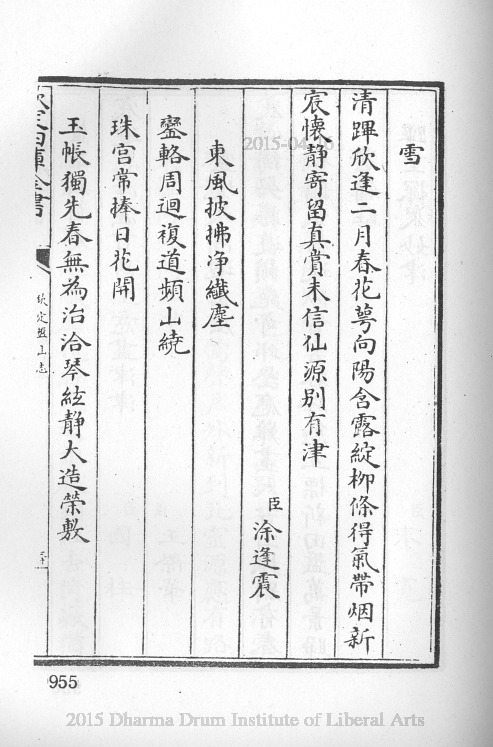 雪
清蹕欣逢二月春花萼向陽含露綻柳條得氣帶烟新
宸懷静寄留真賞未信仙源别有津
臣涂逢震
東風披拂净纖塵
鑾輅周迴複道頻山繞
珠宫常捧日花開
玉帳獨先春無為治洽琴絃静大造榮敷
欽定四庫全書
欽定盤山志
二十
955
2015-04
2015 Dharma Drum Institute of Liberal Arts